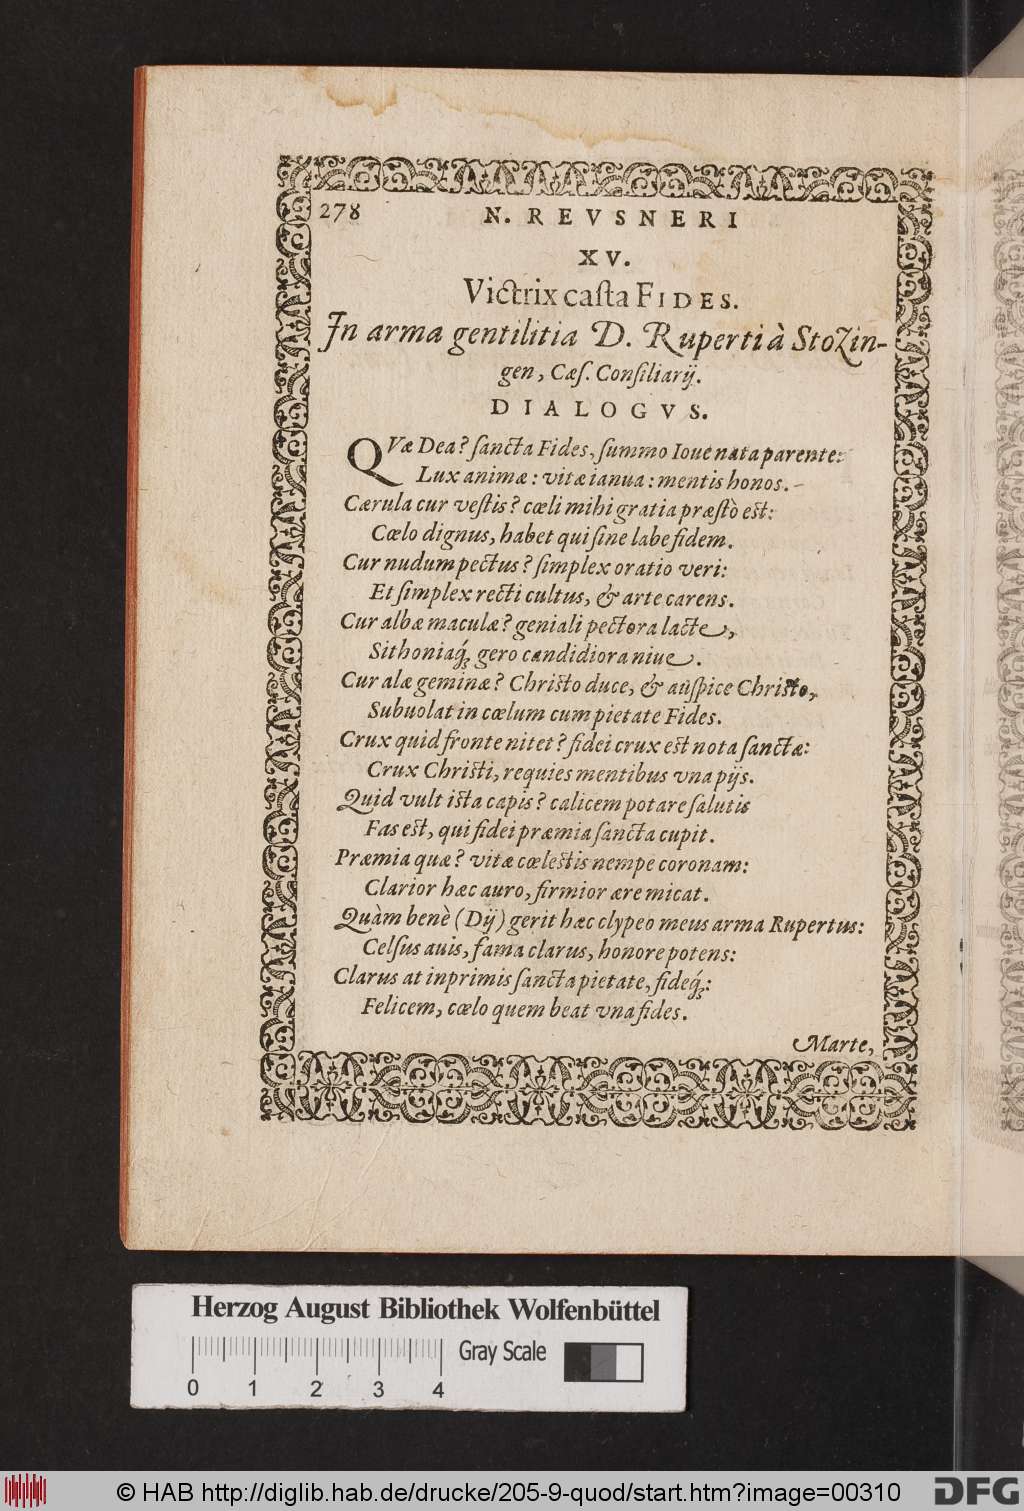 278
N. REVSNERI
XV.
Victrix caſta FIDES.
In arma gentilitia D. Ruperti à Stozin-
gen, Cæſ. Conſiliarij.
DIALOGVS.
QVæ Dea? ſancta Fides, ſummo Ioue nata parente:
Lux animæ: vitæ ianua: mentis honos.
Cærula cur veſtis? cœli mihi gratia præſtò est:
Cœlo dignus, habet qui ſine labe fidem.
Cur nudum pectus? ſimplex oratio veri:
Et ſimplex recti cultus, & arte carens.
Cur albæ maculæ? geniali pectora lacte,
Sithoniaq́; gero candidiora niue.
Cur alæ geminæ? Christo duce, & auſpice Christo,
Subuolat in cœlum cum pietate Fides.
Crux quid fronte nitet? fidei crux est nota ſanctæ:
Crux Christi, requies mentibus vna pijs.
Quid vult ista capis? calicem potare ſalutis
Fas est, qui fidei præmia ſancta cupit.
Præmia quæ? vitæ cœlestis nempe coronam:
Clarior hæc auro, firmior ære micat.
Quàm benè (Dij) gerit hæc clypeo meus arma Rupertus:
Celſus auis, fama clarus, honore potens:
Clarus at inprimis ſancta pietate, fideq́;:
Felicem, cœlo quem beat vna fides.
Marte,
Herzog August Bibliothek Wolfenbüttel
Gray Scale
0 1 2 3 4
© HAB http://diglib.hab.de/drucke/205-9-quod/start.htm?image=00310
DFG